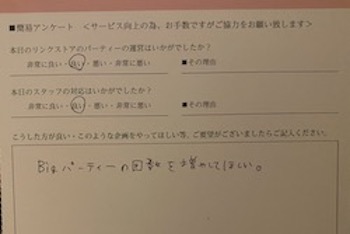 ■簡易アンケート <サービス向上の為、お手数ですがご協力をお願い致します>
本日のリンクストアのパーティーの運営はいかがでしたか?
非常に良い・良い・悪い・非常に悪い ■その理由
本日のスタッフの対応はいかがでしたか?
非常に良い・良い・悪い・非常に悪い ■その理由
こうした方が良い・このような企画をやってほしい等、ご要望がございましたらご記入ください。
Bigパーティーの回数を増やしてほしい。